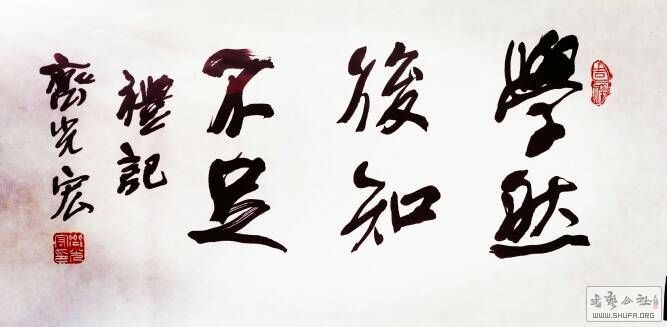 學然
後知
不足
禮記
齊光宏
吉祥
WWW.SHUFA.ORG